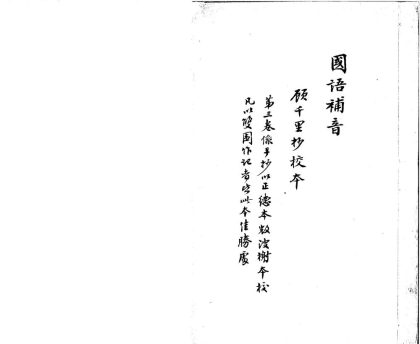 國語補音
顧千里抄校本
第三卷係手抄以正德本殘淡榭本校
凡以雙圈作記者皆此本佳勝處